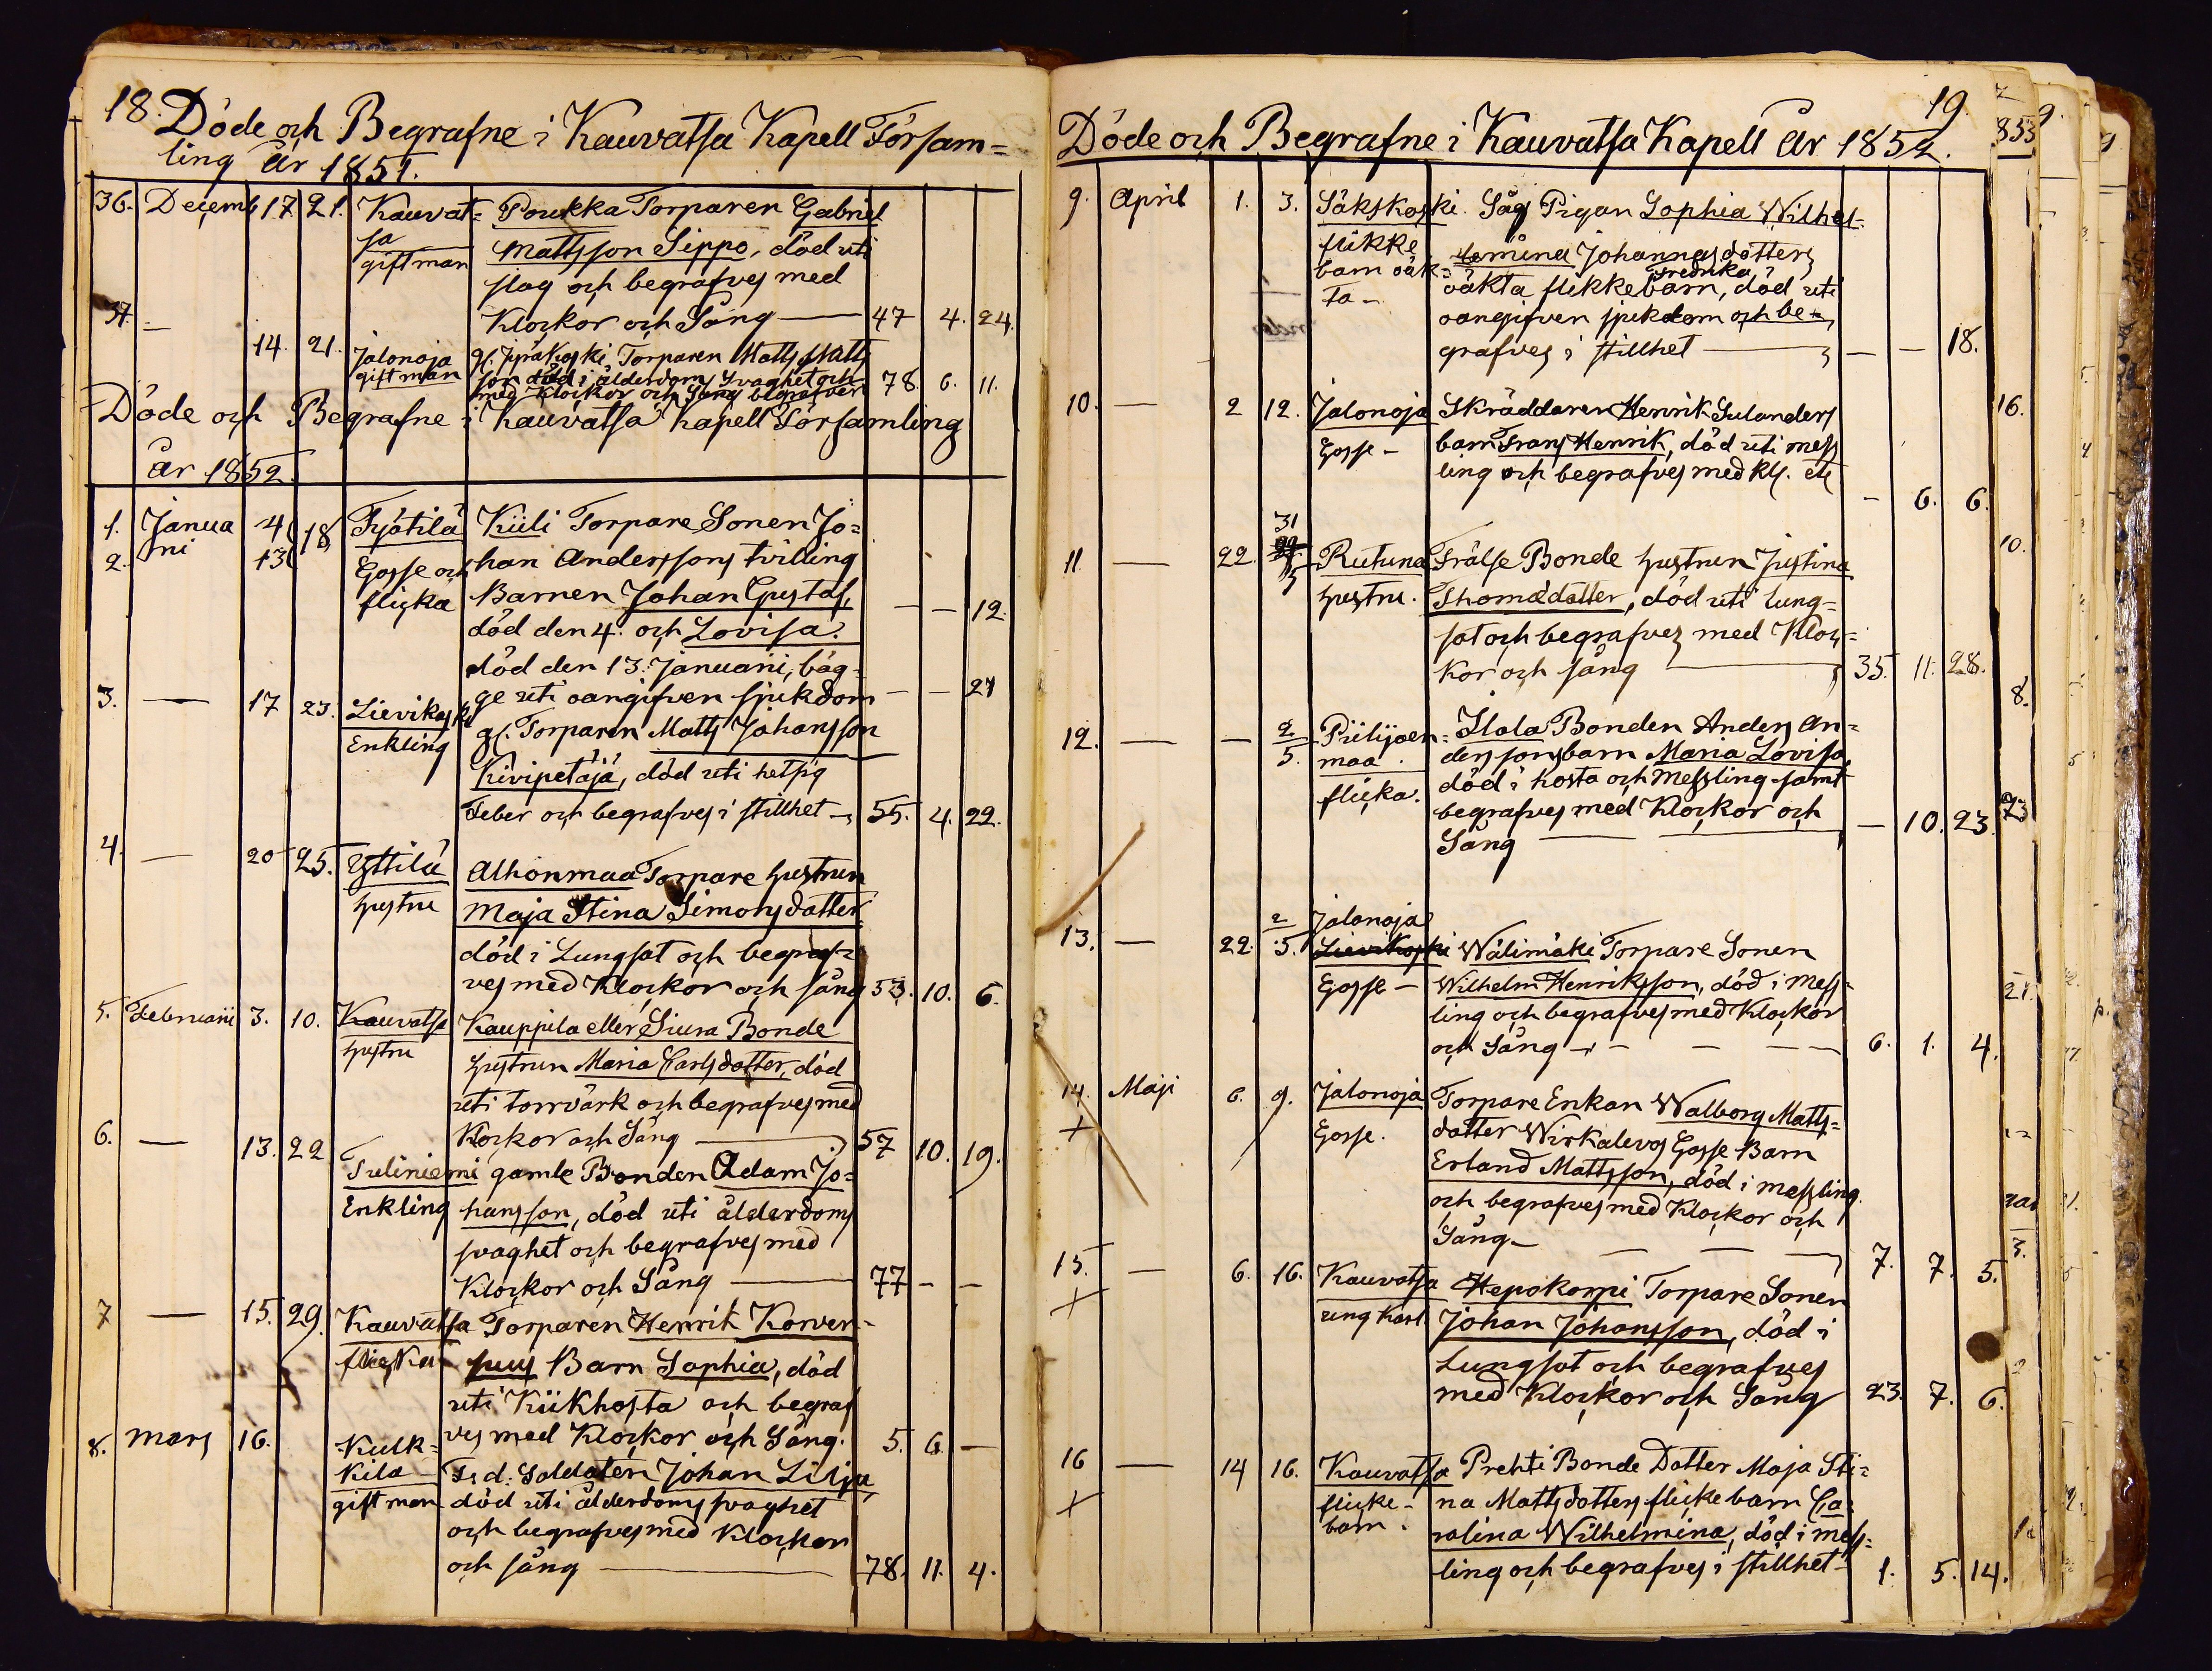 18. Döde och Begrafne i Kauvatsa Kapell Försam=
ling år 1851.
36. Decemb 17 21. Kauvat= Poukka Torparen Gabriel
sa Mattsson Sippo, död uti
gift man slag och begrafves med
Klockor och Sång — 47 4. 24.
37. — 14. 21. Jalonoja gl. Torparen Matts Matts
gift man son död i ålderdoms svaghet och 78. 6. 11.
med Klockor och Sång begrafven
Döde och Begrafne i Kauvatsa Kapell Församling
år 1852.
1. Janua 4 18 Pyötilä Küli Torpare Sonen Jo=
2. rii 13 Gosse och han Anderssons tvilling
flicka Barnen Johan Gustaf, — — 12.
död den 4. och Lovisa.
död den 13. Januarii, båg=
ge uti oangifven sjukdom — — 21
3. — 17 23. Lievikoski gl. Torparen Matts Johansson
Enkling Kivipetäjä, död uti hetsig
Feber och begrafves i stillhet — 55. 4. 22.
4. — 20 25. Yttilä Alhonmaa Torpare hustrun
hustru Maja Stina Simonsdotter
död i Lungsot och begraf=
ves med Klockor och sång 53. 10. 6.
5. Februarii 3. 10. Kauvatsa Kauppila eller Siura Bonde
hustru hustrun Maria Carlsdotter, död
uti torrvärk och begrafves med
Klockor och Sång — 57 10. 19.
6. — 13. 22 Tuliniemi gamle Bonden Adam Jo=
Enkling hansson, död uti ålderdoms
svaghet och begrafves med
Klockor och Sång — 77 — —
7 — 15. 29. Kauvatsa Torparen Henrik Korven=
flicka suus Barn Sophia, död
uti Kikhosta och begraf
ves med Klockor och Sång. 5. 6. —
8. Mars 16. Kulk=
kila F. d. Soldaten Johan Lilja,
gift man död uti ålderdoms svaghet
och begrafves med Klockor
och sång — 78. 11. 4.
19.
Döde och Begrafne i Kauvatsa Kapell År 1852.
9. April 1. 3. Säkskoski Såg Pigan Sophia Wilhel=
flikke mina Johannasdotters
barn oäk= Fredrika
ta — oäkta flickebarn, död uti
oangifven sjukdom och be=
grafves i stillhet — — — 18.
10. — 2 12. Jalonoja Skräddaren Henrik Sulanders
Gosse — barn Frans Henrik, död uti mess
ling och begrafves med Kl. etc — 6. 6.
31
11 — 22. 5 Rutuna Frälse Bonde hustrun Justina
hustru. Thomædotter, död uti lung=
sot och begrafves med Kloc=
kor och sång — 35. 11. 28.
12. — — 2/5. Piilijoen= Ilola Bonden Anders An=
maa. derssons barn Maria Lovisa,
flicka. död i hosta och messling samt
begrafves med Klockor och
Sång — — 10. 23.
13. — 22. 2/5. Jalonoja
Lievikoski Wälimäki Torpare Sonen
Gosse — Wilhelm Henriksson, död i mess=
ling och begrafves med Klockor
och Sång — 6. 1. 4.
14. Maji 6. 9. Jalonoja Torpare Enkan Walborg Matts=
Gosse. dotter Wirkalevos Gosse Barn
Erland Mattsson, död i messling
och begrafves med Klockor och
Sång — 7. 7. 5.
15. — 6. 16. Kauvatsa Hepokorpi Torpare Sonen
ung Karl. Johan Johansson, död i
Lungsot och begrafves
med Klockor och Sång 23. 7. 6.
16 — 14 16. Kauvatsa Prehti Bonde Dotter Maja Sti=
flicke= na Mattsdotters flickebarn Ca=
barn. rolina Wilhelmina, död i mess=
ling och begrafves i stillhet— 1. 5. 14.